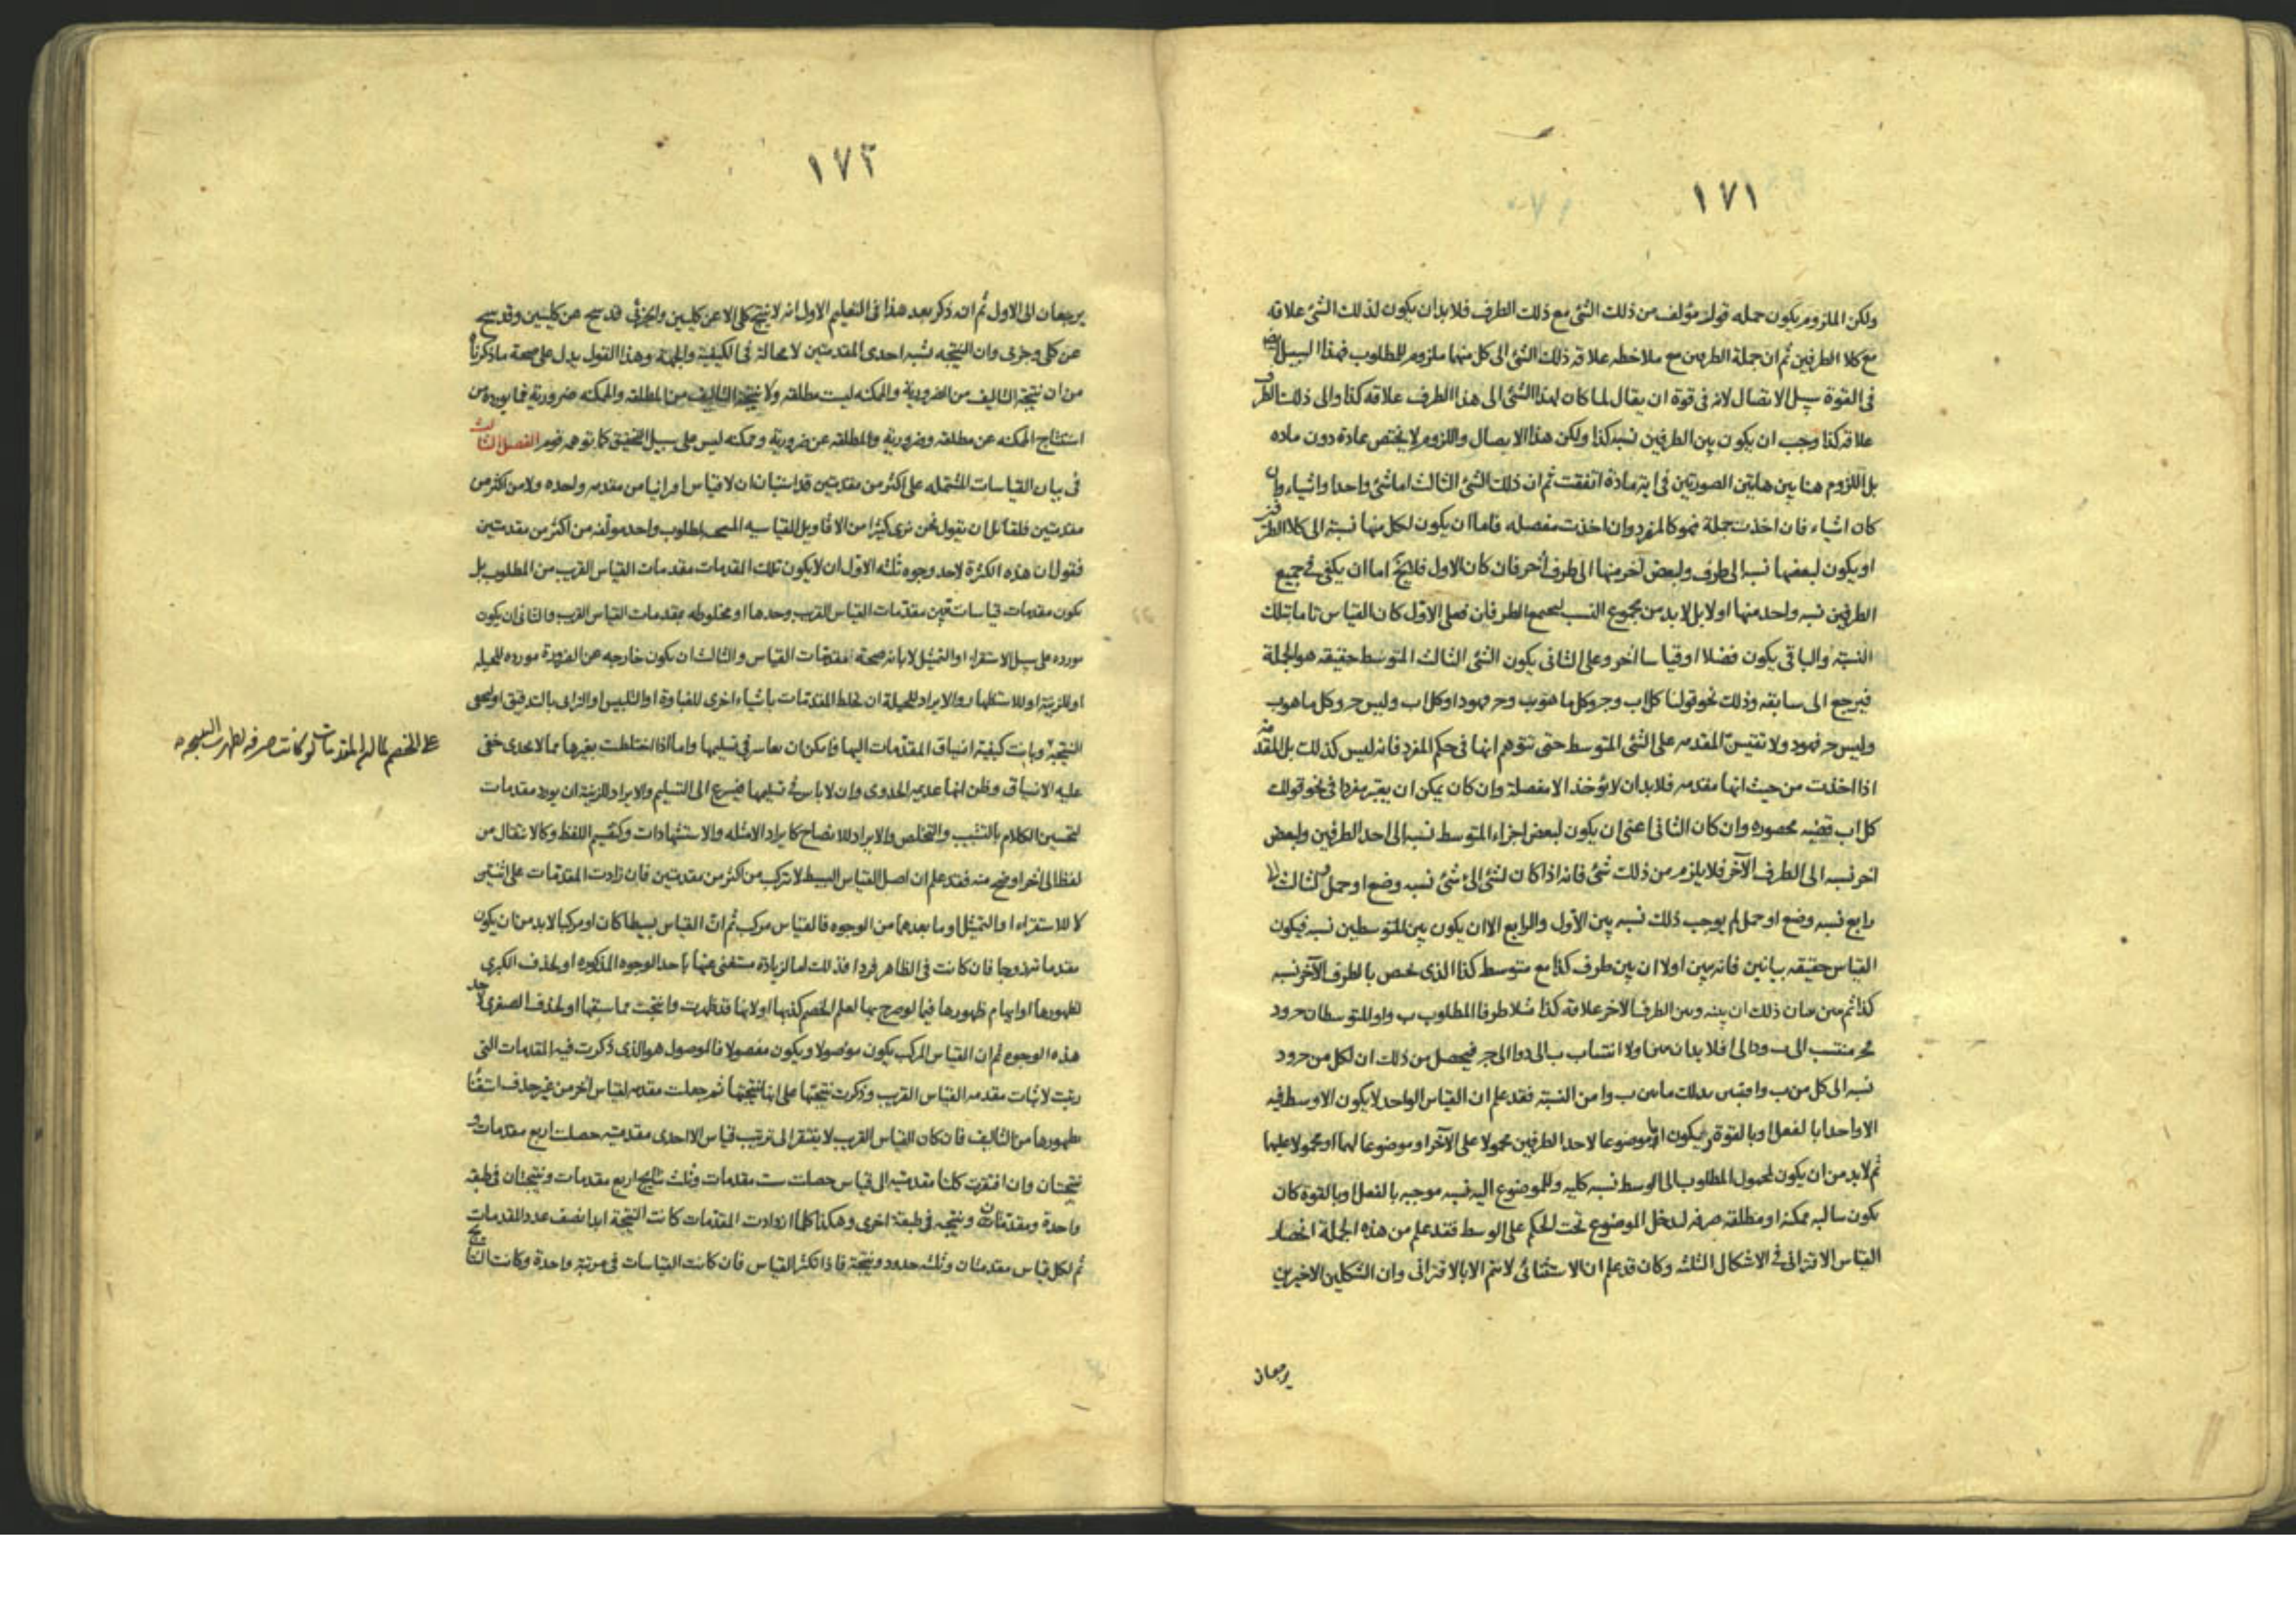 ١٧١
ولكن الملزوم يكون جمله قول مؤلف من ذلك الشئ مع ذلك الطرف فلا بد ان يكون لذلك الشئ علاقه
مع كلا الطرفين ثم ان جملة الطرفين مع ملاحظه علاقه ذلك الشئ الى كل منها ملزوم للمطلوب فهذا السبيل
فى القوة سبيل الاتصال لانه فى قوة ان يقال لما كان لهذا الشئ الى هذا الطرف علاقه كذا والى ذلك الطرف
علاقه كذا وجب ان يكون بين الطرفين نسبه كذا ولكن هذا الايصال واللزوم لا يختص بمادة دون ماده
بل اللزوم هنا بين هاتين الصورتين فى اية مادة اتفقت ثم ان ذلك الشئ الثالث اما شئ واحد او اشياء وان
كان اشياء فان اخذت جملة فهو كالمفرد وان اخذت مفصله فاما ان يكون لكل منها نسبة الى كلا الطرفين
او يكون لبعضها نسبه الى طرف ولبعض آخر منها الى طرف آخر فان كان الاول فلا يخ اما ان يكفى فى جميع
الطرفين نسبه واحد منها اولا بل لا بد من مجموع النسب لجميع الطرفين فعلى الاول كان القياس تاما بتلك
النسبة والباقى يكون فضلا او قياسا آخر وعلى الثانى يكون الشئ الثالث المتوسط حقيقه هو الجملة
فيرجع الى سابقه وذلك نحو قولنا كل اب وج وكل ما هو ب وج فهو د او كل اب وليس ج وكل ما هو ب
وليس ج فهو د ولا تقيسن المقدمه على الشئ المتوسط حتى تتوهم انها فى حكم المفرد فانه ليس كذلك بل المقدمه
اذا اخذت من حيث انها مقدمه فلا بد ان لا يؤخذ الا مفصلة وان كان يمكن ان يعتبر مفردا فى نحو قولك
كل اب قضيه محصوره وان كان الثانى اعنى ان يكون لبعض اجزاء المتوسط نسبه الى احد الطرفين ولبعض
آخر نسبه الى الطرف الآخر فلا يلزم من ذلك شئ فانه اذا كان لشئ الى شئ نسبه وضع او حمل ولثالث الى
رابع نسبه وضع او حمل لم يوجب ذلك نسبه بين الاول والرابع الا ان يكون بين المتوسطين نسبه فيكون
القياس حقيقه بيانين فانه يبين اولا ان بين طرف كذا مع متوسط كذا الذى يخص بالطرف الآخر نسبه
كذا ثم يبين ذلك ان بينه وبين الطرف الآخر علاقه كذا مثلا طرفا المطلوب ب وا والمتوسطان ج ود
فج منتسب الى ب ود الى ا فلا بد ان يبين اولا انتساب ب الى د وا الى ج فيحصل من ذلك ان لكل من ج ود
نسبه الى كل من ب وا من النسبة فقد علم ان القياس الواحد لا يكون الاوسط فيه
الا واحدا بالفعل او بالقوة ويكون اما موضوعا لاحد الطرفين محمولا على الآخر او موضوعا لهما او محمولا عليهما
ثم لا بد من ان يكون لمحمول المطلوب الى الوسط نسبه كليه وللموضوع اليه نسبه موجبه بالفعل او بالقوة كان
يكون سالبه ممكنة او مطلقه صرفه ليدخل الموضوع تحت الحكم على الوسط فقد علم من هذه الجملة انحصار
القياس الاقترانى فى الاشكال الثلثه وكان قد علم ان الاستثنائى لا يتم الا بالاقترانى وان الشكلين الاخيرين
يرجعان
١٧٢
يرجعان الى الاول ثم انه ذكر بعد هذا فى التعليم الاول انه لا ينتج كلى الا عن كليين والجزئى قد ينتج عن كليين وقد ينتج
عن كلى وجزئى وان النتيجه تشبه احدى المقدمتين لا محالة فى الكيفية والجهة وهذا القول يدل على صحة ما ذكرناه
من ان نتيجة التاليف من الضرورية والممكنه ليست مطلقه ولا نتيجة التاليف من المطلقه والممكنه ضرورية فما يورده من
استنتاج الممكنه عن مطلقه وضرورية والمطلقه عن ضرورية وممكنه ليس على سبيل التحقيق كما توهمه قوم الفصل الثالث
فى بيان القياسات المشتمله على اكثر من مقدمتين قد استبان ان لا قياس اقترانيا من مقدمه واحده ولا من اكثر من
مقدمتين فلقائل ان يقول نحن نرى كثيرا من الاقاويل القياسيه المنتجه لمطلوب واحد مولفه من اكثر من مقدمتين
فنقول ان هذه الكثرة لاحد وجوه ثلثه الاول ان لا يكون تلك المقدمات مقدمات القياس القريب من المطلوب بل
يكون مقدمات قياسات تبين مقدمات القياس القريب وحدها او مخلوطه بمقدمات القياس القريب والثانى ان يكون
مورده على سبيل الاستقراء او التمثيل لابانه صحة مقدمات القياس والثالث ان يكون خارجه عن الضرورة مورده للحيله
او للزينة او للاستظهار والايراد للحيلة ان تخلط المقدمات باشياء اخرى للغباوة او التلبيس او الترائى بالتدقيق او ليخفى
النتيجة وبانت كيفية انسياق المقدمات اليها فامكن ان يعاسر فى تسليمها واما اذا اختلطت بغيرها مما لا يجدى خفى
على الخصم لما ان المقدمات لو كانت صرفه لظهرت النتيجه
عليه الانسياق وظن انها عديمه الجدوى وان لا باس فى تسليمها فيسرع الى التسليم والايراد للزينة ان يورد مقدمات
لتحسين الكلام بالتشبيب والتخلص والايراد للايضاح كايراد الامثله والاستشهادات وكتغيير اللفظ وكالانتقال من
لفظ الى آخر اوضح منه فقد علم ان اصل القياس البسيط لا يتركب من اكثر من مقدمتين فان زادت المقدمات على اثنتين
لا للاستقراء او التمثيل او ما بعدهما من الوجوه فالقياس مركب ثم ان القياس بسيطا كان او مركبا لا بد من ان يكون
مقدماته زوجا فان كانت فى الظاهر فردا فذلك اما لزيادة مستغنى عنها باحد الوجوه المذكوره او لحذف الكبرى
لظهورها او ايهام ظهورها فيما لو صرح بها لعلم الخصم كذبها او لانها قد ظهرت وانتجت مما سبقها او لحذف الصغرى لاحد
هذه الوجوه ثم ان القياس المركب يكون موصولا ويكون مفصولا فالموصول هو الذى ذكرت فيه المقدمات التى
رتبت لاثبات مقدمه القياس القريب وذكرت نتيجتها على انها نتيجتها ثم جعلت مقدمه لقياس آخر من غير حذف
ظهورها من التاليف فان كان القياس القريب لا يفتقر الى ترتيب قياس الا احدى مقدمتيه حصلت اربع مقدمات و
نتيجتان وان افتقرت كلتا مقدمتيه الى قياس حصلت ست مقدمات وثلث نتايج اربع مقدمات ونتيجتان فى طبقه
واحدة ومقدمتان ونتيجه فى طبقة اخرى وهكذا كلما ازدادت المقدمات كانت النتيجة ابدا نصف عدد المقدمات
ثم لكل قياس مقدمتان وثلثه حدود ونتيجة فاذا تكثر القياس فان كانت القياسات فى مرتبة واحدة وكانت النتايج